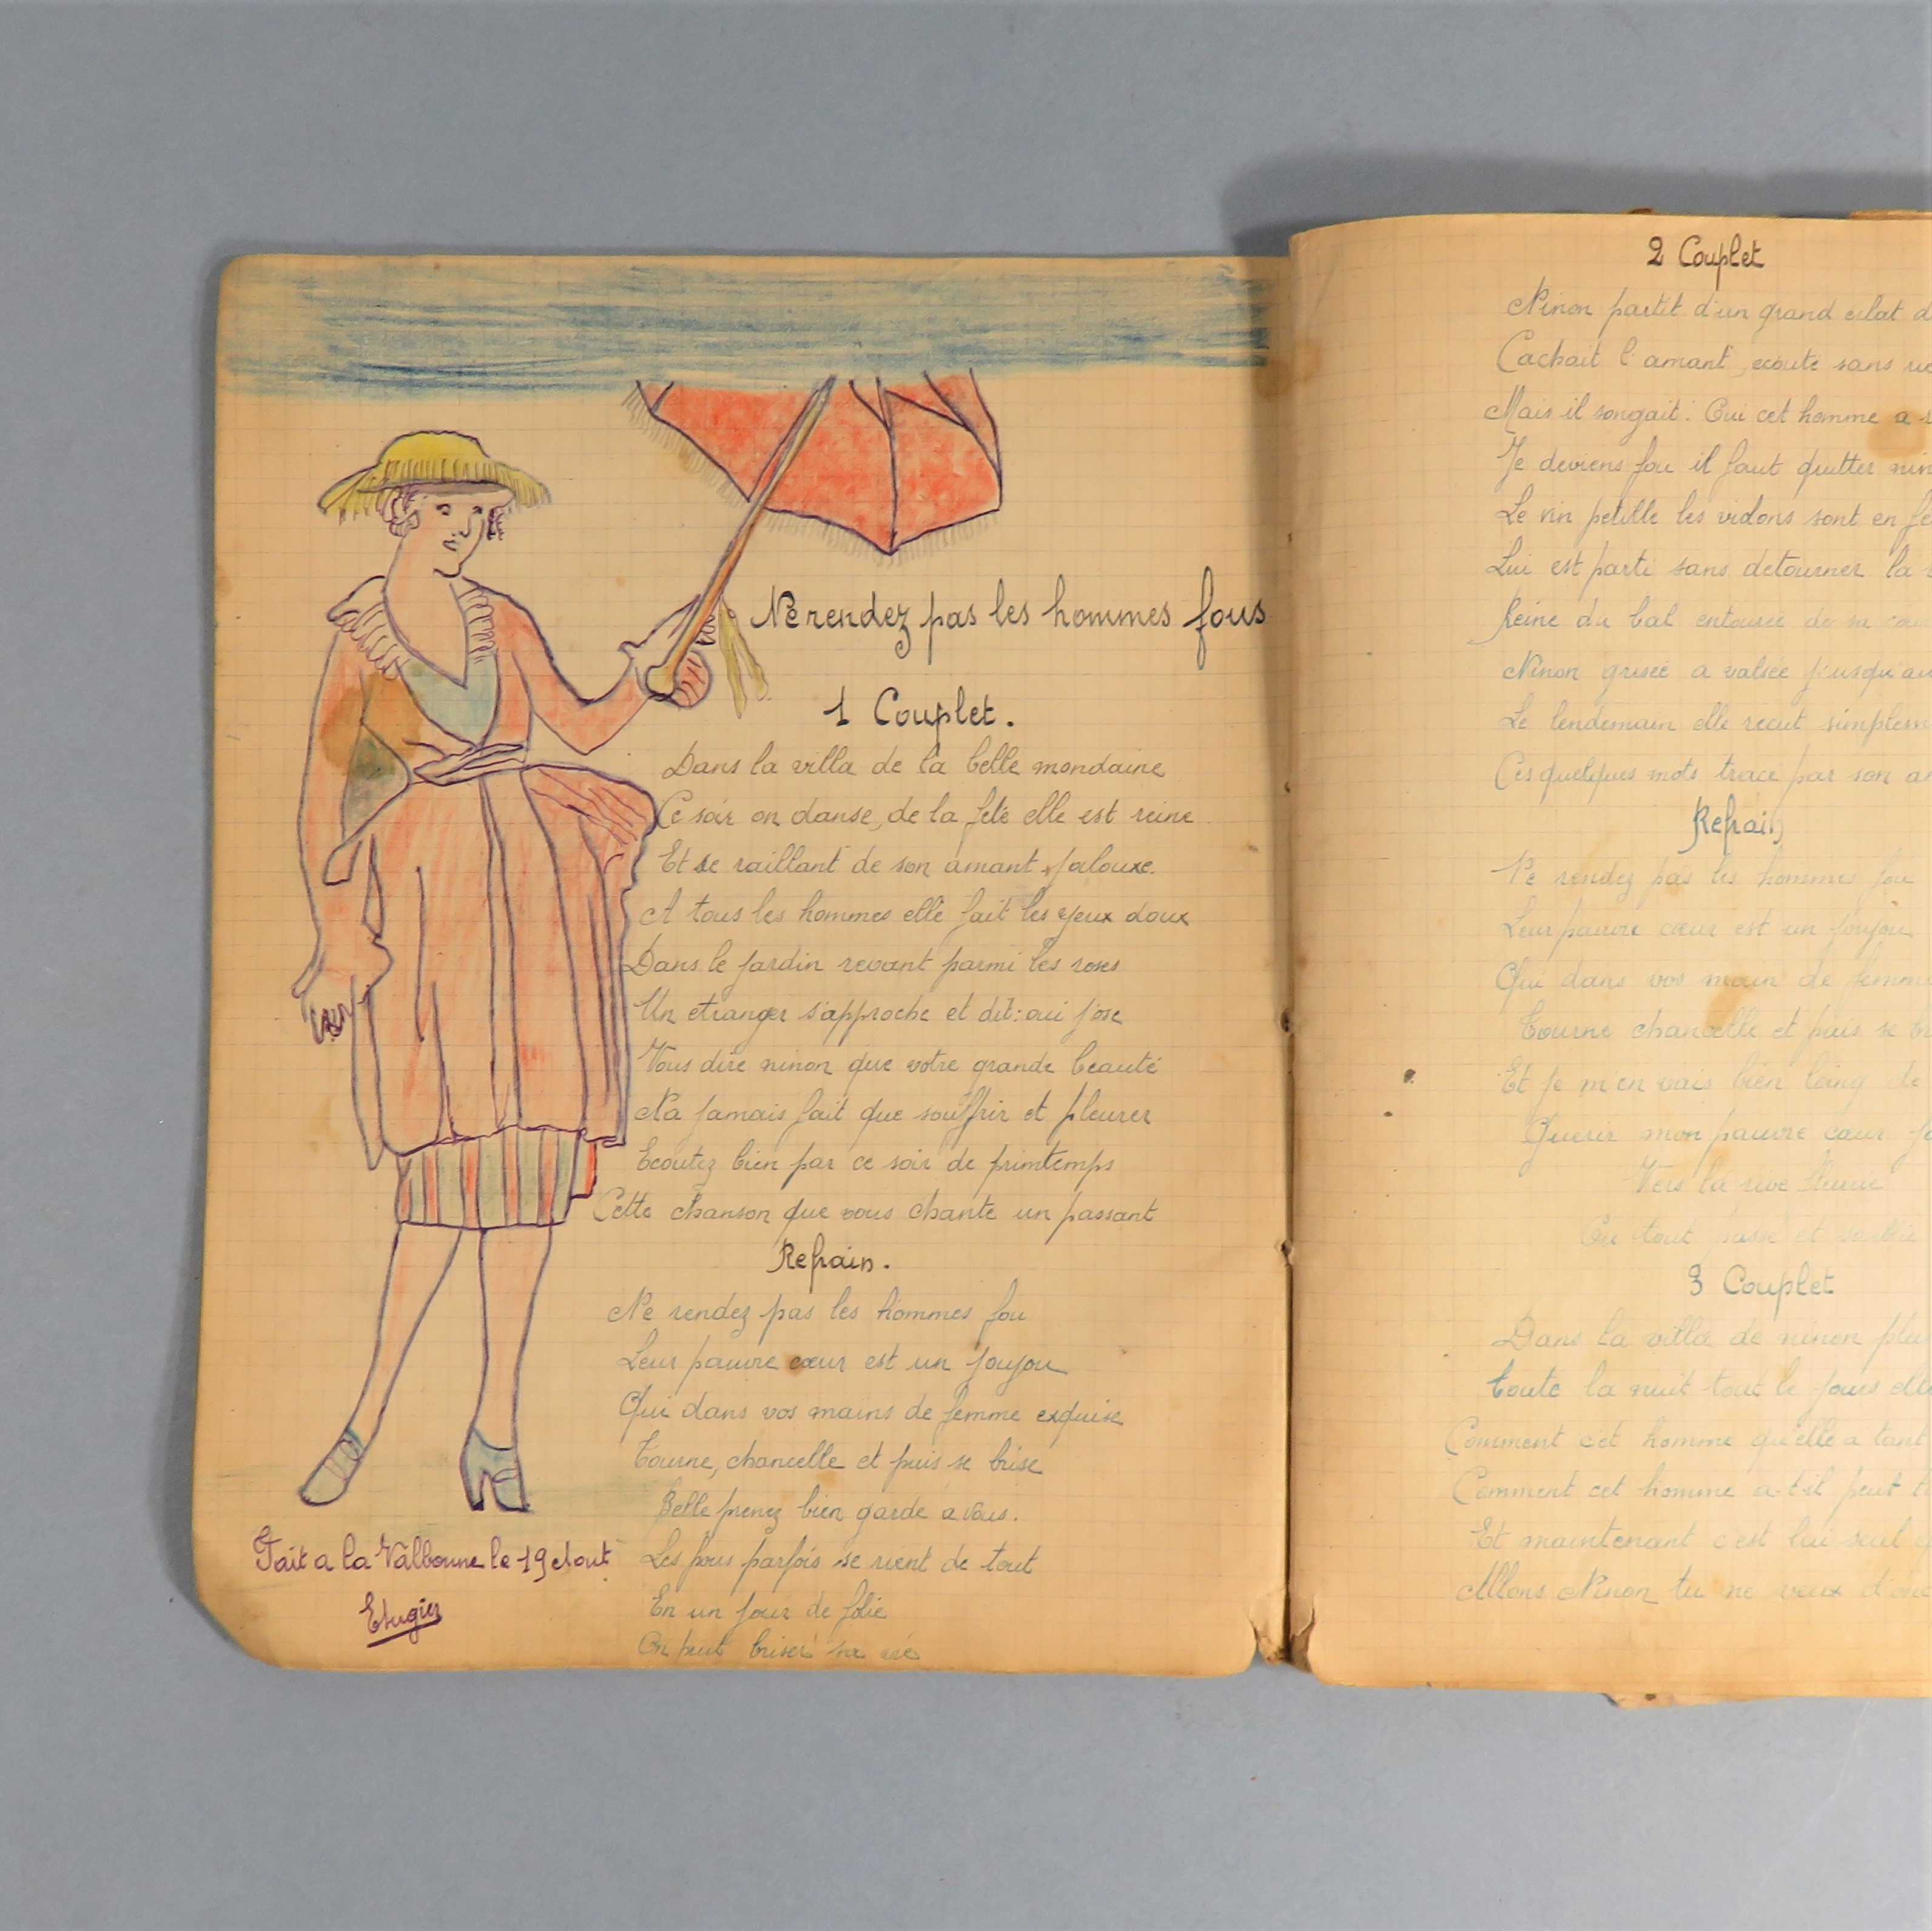 Ne rendez pas les hommes fous
1 Couplet.
Dans la villa de la belle mondaine
Ce soir on danse, de la fete elle est reine
Et se raillant de son amant jalouxe.
A tous les hommes elle fait les yeux doux
Dans le jardin revant parmi les roses
Un etranger s'approche et dit: oui j'ose
Vous dire ninon que votre grande beauté
Na jamais fait que souffrir et pleurer
Ecoutez bien par ce soir de primtemps
Cette chanson que vous chante un passant
Refrain.
Ne rendez pas les hommes fou
Leur pauvre cœur est un joujou
Qui dans vos mains de femme exquise
Tourne, chancelle et puis se brise
Belle prenez bien garde a vous.
Les fous parfois se rient de tout
En un jour de folie
On peut briser sa vie
Fait a la Valbonne le 19 Aout
2 Couplet
Ninon partit d'un grand eclat d
Cachait l'amant, ecouté sans
Mais il songait: Oui cet homme a
Je deviens fou il faut quitter nin
Le vin petille les vidons sont en fe
Lui est parti sans detourner la
Reine du bal entourée de sa cour
Ninon grisée a valsée jusqu'au
Le lendemain elle recut simplem
Ces quelques mots trace par son
Refrain
Ne rendez pas les hommes fou
Leur pauvre cœur est un joujou
Qui dans vos main de femme
Tourne chancelle et puis se
Et je m'en vais bien loing de
Guerir mon pauvre cœur
Vers la rive fleurie
Ou tout passe et
3 Couplet
Dans la villa de ninon
Toute la nuit tout le jours elle
Comment cet homme qu'elle a tant
Comment cet homme a-t-il peut
Et maintenant c'est lui seul
Allons Ninon tu ne veux